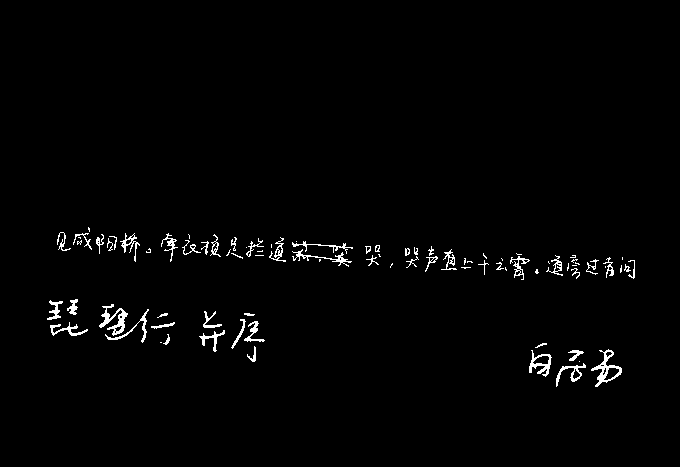 见咸阳桥。牵衣顿足拦道哭，哭声直上干云霄。道旁过者问
琵琶行 并序
白居易